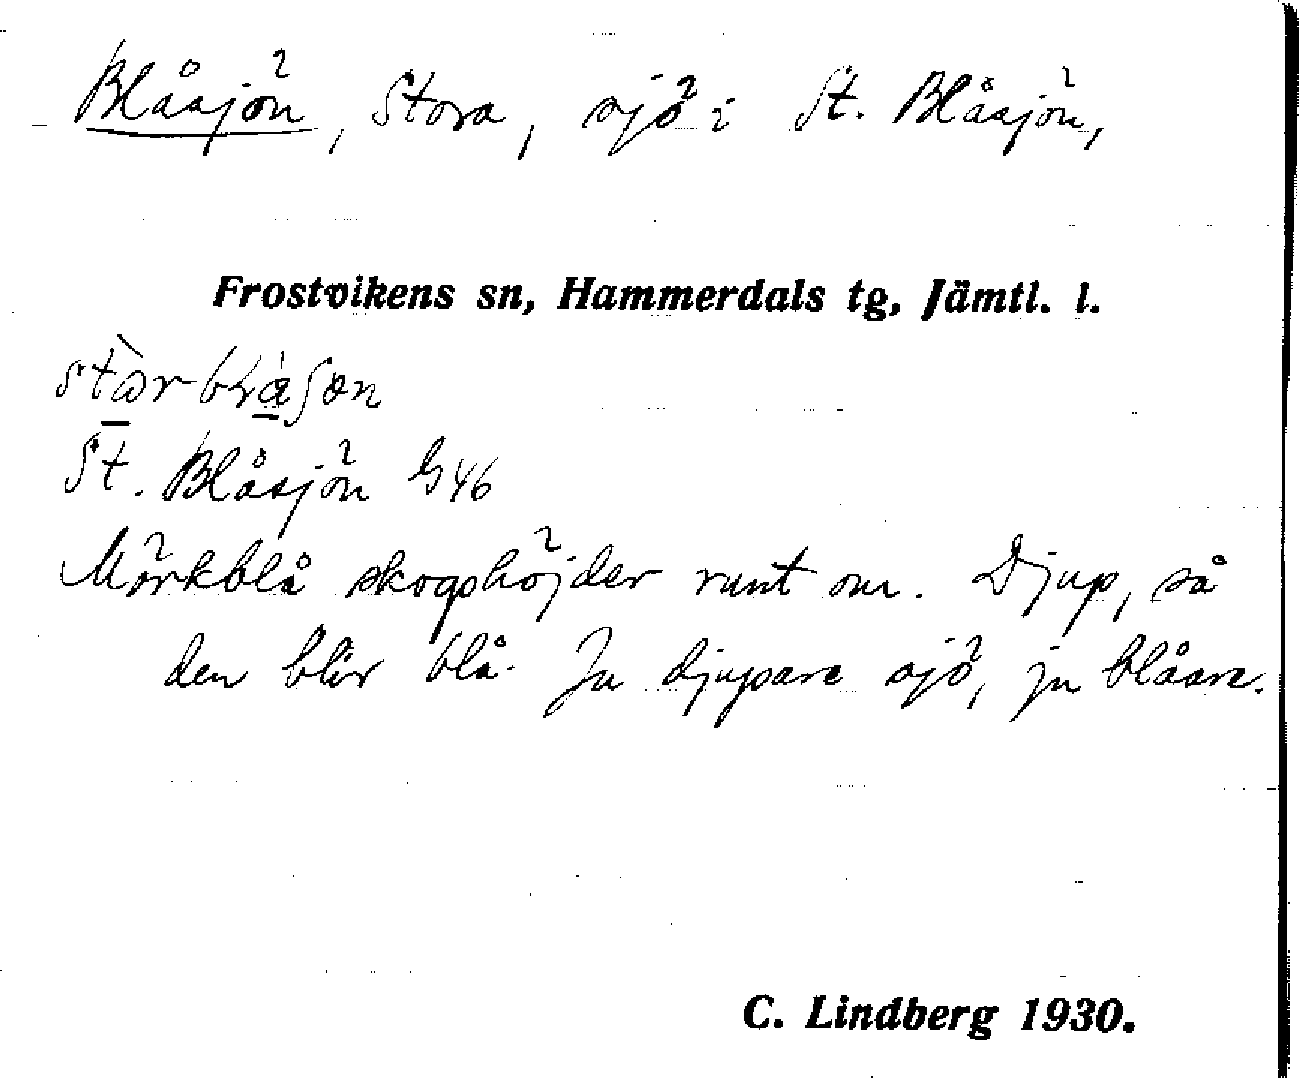 Blåsjön, Stora, sjö i St. Blåsjön,
Frostvikens sn, Hammerdals tg, Jämtl. l.
St. Blåsjön G46
Mörkblå skogshöjder runt om. Djup, så
den blir blå. Ju djupare sjö, ju blåare.
C. Lindberg 1930.